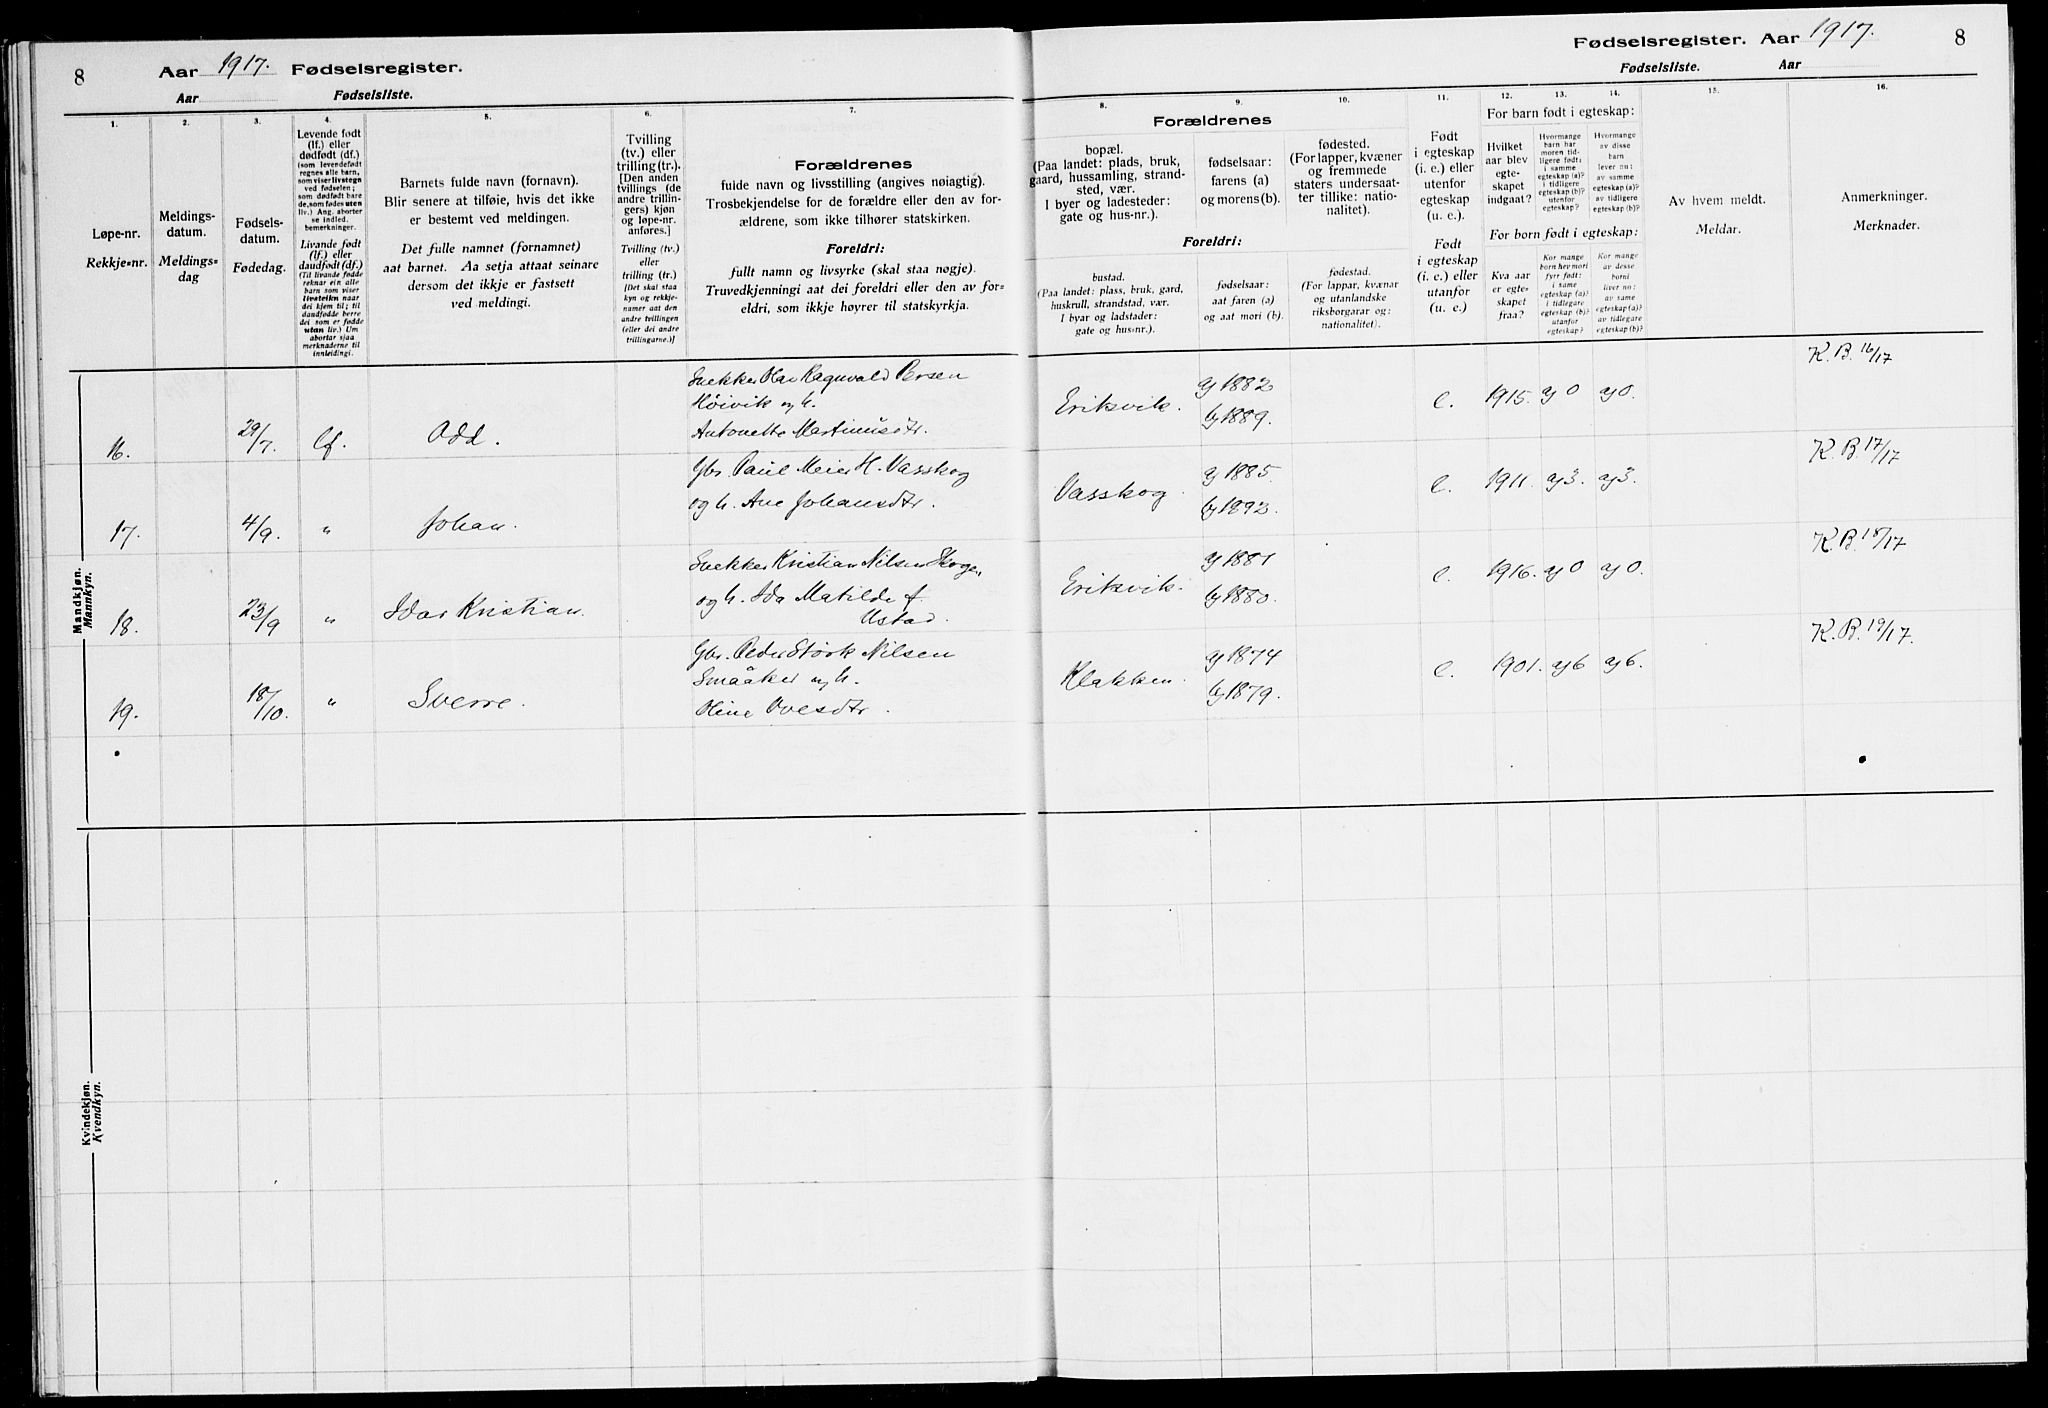 8
Aar 1917. Fødselsregister.
Aar Fødselsliste.
1.
Løpe-nr.
Rekkje=nr.
2.
Meldings-
datum.
Meldings=
dag
3.
Fødsels-
datum.
Fødedag.
4.
Levende født
(lf.) eller
dødfødt (df.)
(som levendefødt
regnes alle barn,
som viser livstegn
ved fødselen;
som dødfødt bare
de, som fødes uten
liv.) Ang. aborter
se indled.
bemerkninger.
Livande født
(lf.) eller
daudfødt (df.)
(Til livande fødde
reknar ein alle
barn som viser
livsteikn naar
dei kjem til; til
daudfødde berre
dei som er fødde
utan liv.) Um
abortar sjaa
merknaderne til
innleidingi.
5.
Barnets fulde navn (fornavn).
Blir senere at tilføie, hvis det ikke
er bestemt ved meldingen.
Det fulle namnet (fornamnet)
aat barnet. Aa setja attaat seinare
dersom det ikkje er fastsett
ved meldingi.
6.
Tvilling
(tv.) eller
trilling (tr.).
[Den anden
tvillings (de
andre trillin-
gers) kjøn
og løpe-nr.
anføres.]
Tvilling (tv.)
eller
trilling (tr.)
[Det skal staa
kyn og rekkje-
numer aat den
andre tvillingen
(eller dei andre
trillingarne.)]
7.
Forældrenes
fulde navn og livsstilling (angives nøiagtig).
Trosbekjendelse for de forældre eller den av for-
ældrene, som ikke tilhører statskirken.
Foreldri:
fullt namn og livsyrke (skal staa nøgje).
Truvedkjenningi aat dei foreldri eller den av for=
eldri, som ikkje høyrer til statskyrkja.
Mandkjøn.
Mannkyn.
16. 29/7. lf. Odd. Snekker Olav Ragnvald Persen
Höivik og h.
Antonette Martinusdtr.
17. 4/9. " Johan. Gbr. Paul Meier H. Vasskog
og h. Ane Johansdtr.
18. 23/9 " Idar Kristian. Snekker Kristian Nilsen Skogen
og h. Ida Matilde f.
Ustad.
19. 18/10. " Sverre. Gbr. Peder Störk Nilsen
Småäker og h.
Oline Ovesdtr.
Kvindekjøn.
Kvendkyn.
Fødselsregister. Aar 1917. 8
Fødselsliste. Aar
8.
Forældrenes
bopæl.
(Paa landet: plads, bruk,
gaard, hussamling, strand-
sted, vær.
I byer og ladesteder:
gate og hus-nr.).
Foreldri:
bustad.
(Paa landet: plass, bruk, gard,
huskrull, strandstad, vær.
I byar og ladstader:
gate og hus=nr.).
9.
fødselsaar:
farens (a)
og morens (b).
fødselsaar:
aat faren (a)
og aat mori (b).
10.
fødested.
(For lapper, kvæner
og fremmede
staters undersaat-
ter tillike: natio-
nalitet).
fødestad.
(For lappar, kvænar
og utanlandske
riksborgarar og:
nationalitet).
11.
Født
i egteskap
(i. e.) eller
utenfor
egteskap
(u. e.).
Født
i egteskap
(i. e.) eller
utanfor
(u. e.)
12. 13. 14.
For barn født i egteskap:
Hvilket
aar blev
egte-
skapet
indgaat?
Hvormange
barn har
moren tid-
ligere født:
i samme
egteskap (a)?
i tidligere
egteskap (b)?
utenfor
egteskap?
Hvormange
av disse
barn
lever nu:
av samme
egteskap (a)?
av tidligere
egteskap (b)?
For born født i egteskap:
Kva aar
er egte-
skapet
fraa?
Kor mange
born hev mori
fyrr født:
i same
egteskap (a)?
i tidlegare
egteskap (b)?
utanfor
egteskap?
Kor mange
av desse
borni
liver no:
av same
egteskap (a)?
av tidlegare
egteskap (b)?
15.
Av hvem meldt.
Meldar.
16.
Anmerkninger.
Merknader.
Eriksvik. a) 1882 b) 1889. e. 1915. a) 0 a) 0. K. B. 16/17
Vasskog a) 1885. b) 1892. e. 1911. a) 3. a) 3. K. B. 17/17
Eriksvik. a) 1881 b) 1880. e. 1916. a) 0 a) 0. K. B. 18/17
Klakken. a) 1874 b) 1879. e. 1901. a) 6 a) 6. K. B. 19/17.